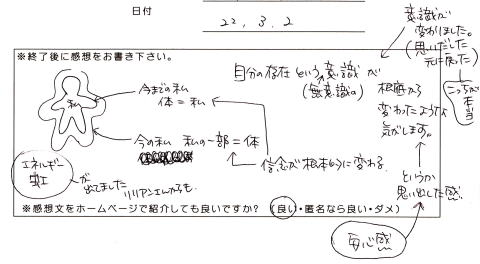 日付
22, 3, 2
意識が
変わりました。
(思いだした
元に戻った)
こっちが
本当
※終了後に感想をお書き下さい。
自分の存在という意識が
(無意識の)
根底から
変わったような
気がします。
というか
思い出した感。
安心感
私
今までの私
体=私
今の私 私の一部=体
信念が根本的に変わる
エネルギー
が出てました
※感想文をホームページで紹介しても良いですか? (良い・匿名なら良い・ダメ)